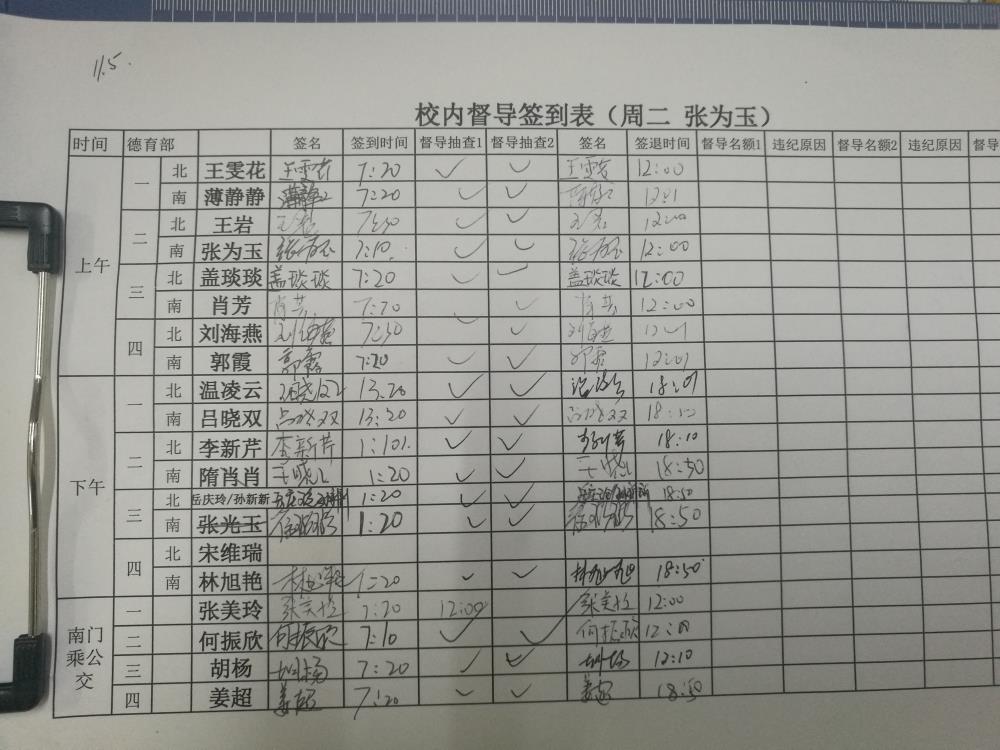 11.5.
校内督导签到表（周二 张为玉）
时间 德育部 签名 签到时间 督导抽查1 督导抽查2 签名 签退时间 督导名额1 违纪原因 督导名额2 违纪原因 督导
上午 一 北 王雯花 王雯花 7:20 ✓ ✓ 王雯花 12:00
南 薄静静 薄静静 7:20 ✓ ✓ 12:01
二 北 王岩 王岩 7:30 ✓ ✓ 王岩 12:00
南 张为玉 张为玉 7:10. ✓ ✓ 张为玉 12:00
三 北 盖琰琰 盖琰琰 7:20 ✓ ✓ 盖琰琰 12:00
南 肖芳 肖芳 7:20 ✓ ✓ 肖芳 12:00
四 北 刘海燕 刘海燕 7:30 ✓ 刘海燕
南 郭霞 郭霞 7:20 ✓ ✓ 郭霞 12:01
下午 一 北 温凌云 13.20 ✓ ✓ 18:01
南 吕晓双 吕晓双 13:20 ✓ ✓ 吕晓双
二 北 李新芹 李新芹 ✓ ✓ 李新芹 18:10
南 隋肖肖 1:20 ✓ ✓ 18:30
三 北 岳庆玲/孙新新 1:20 ✓ ✓ 18:50
南 张光玉 1:20 ✓ ✓ 18:50
四 北 宋维瑞
南 林旭艳 林旭艳 1:20 ✓ ✓ 林旭艳 18:50
南门乘公交 一 张美玲 张美玲 7:20 12:00 张美玲 12:00
二 何振欣 何振欣 7:10 ✓ ✓ 何振欣 12:00
三 胡杨 胡杨 7:20 ✓ ✓ 胡杨 12:10
四 姜超 姜超 7:20 ✓ ✓ 姜超 18:50